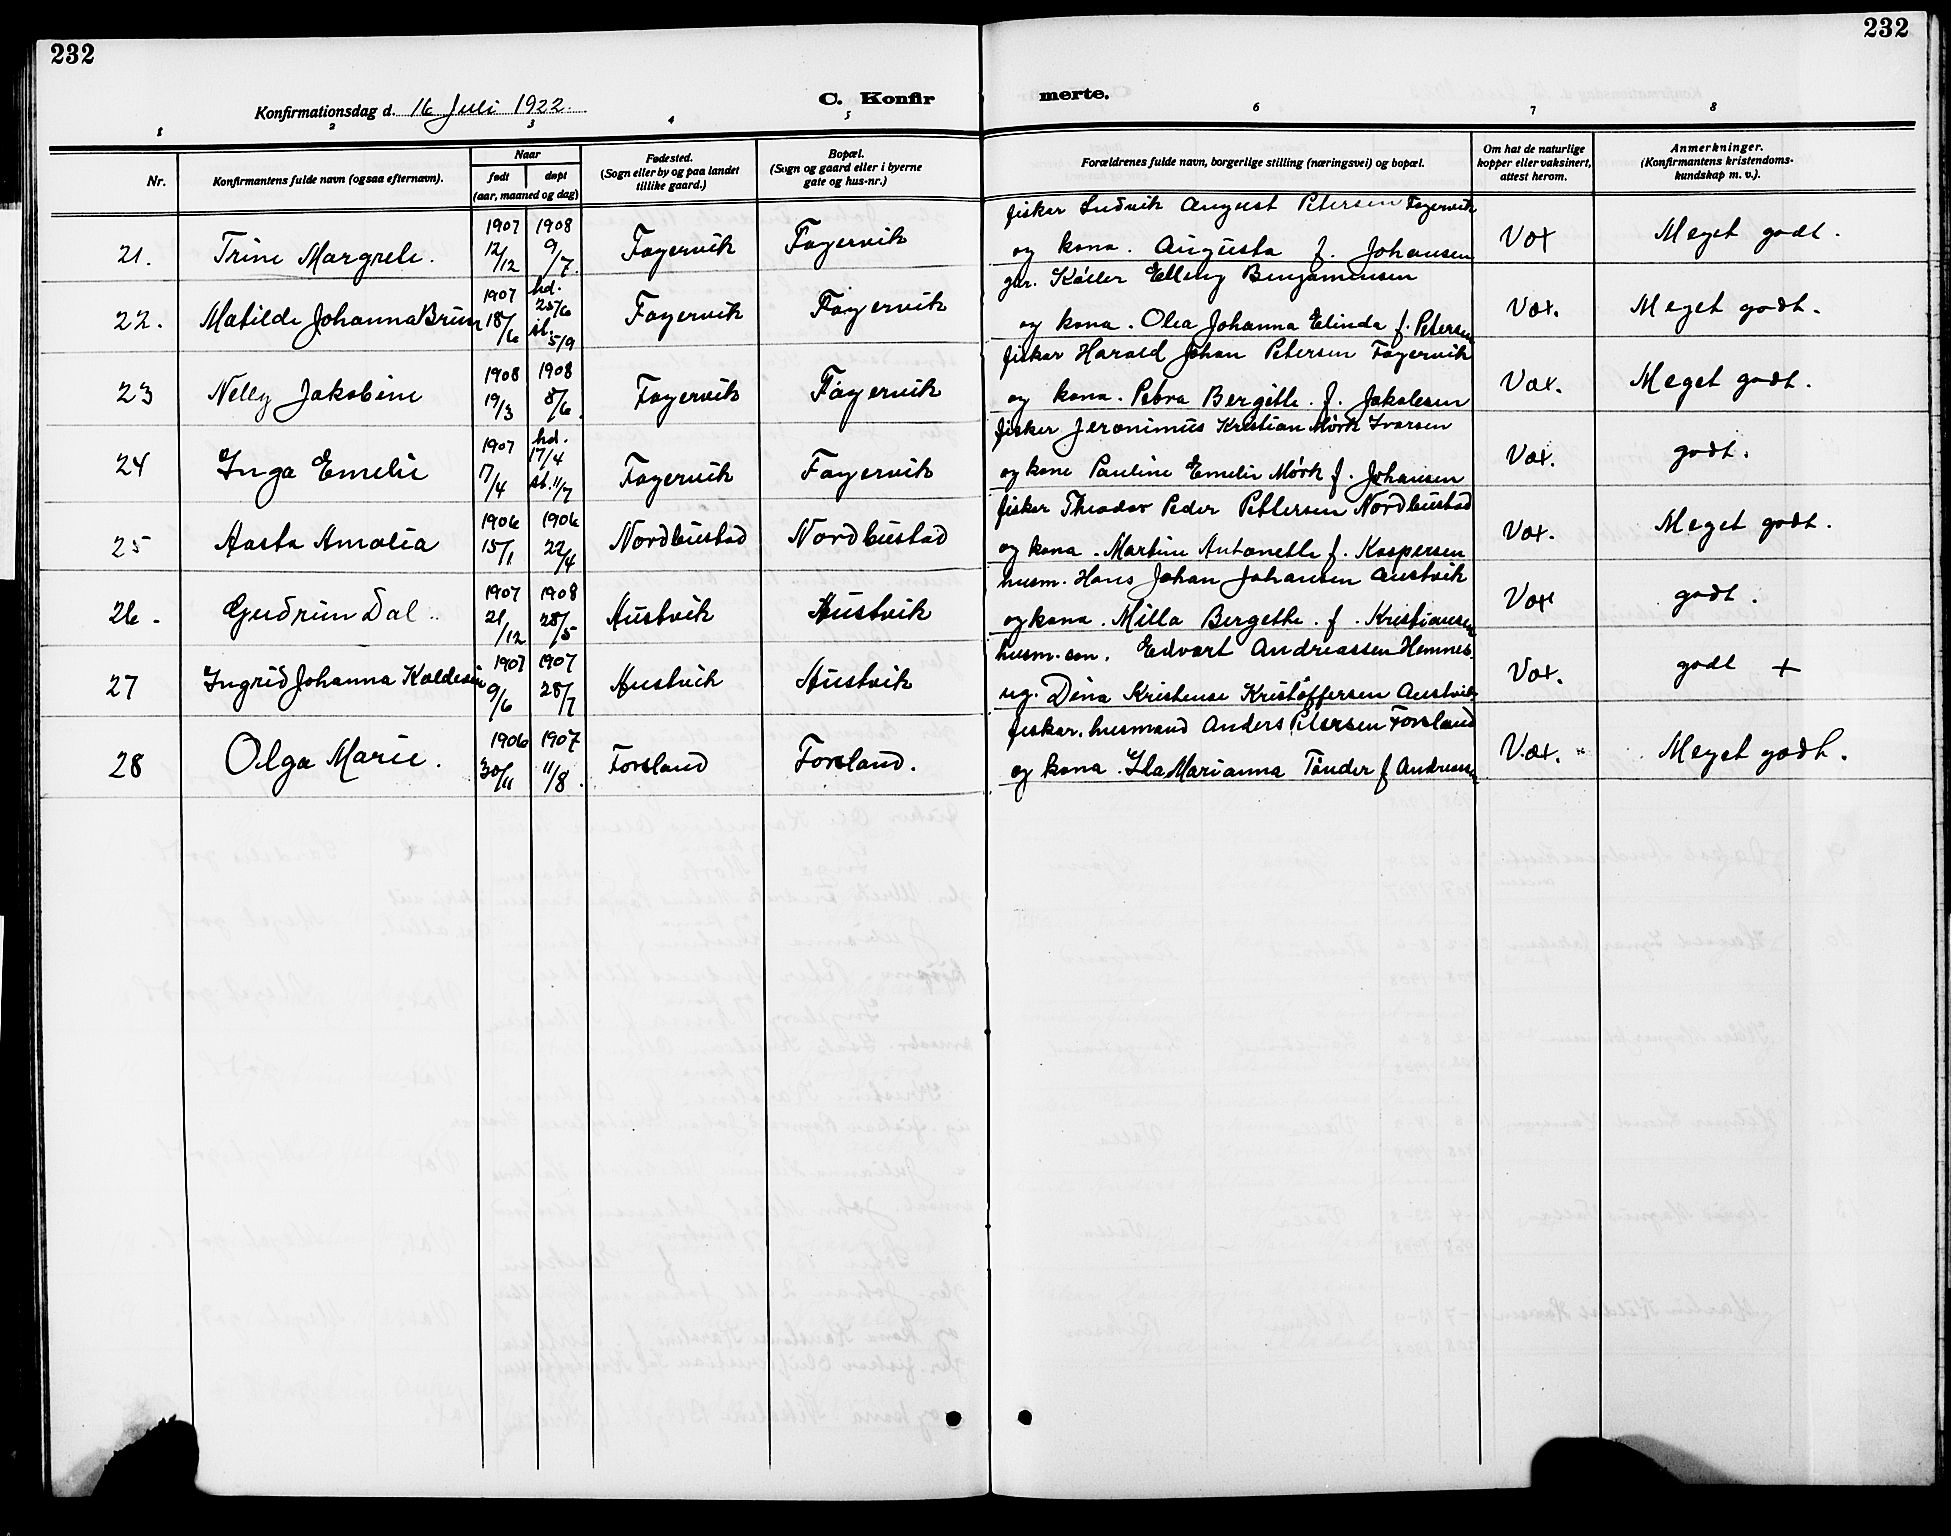 232
232
Konfirmationsdag d. 16 Juli 1922.
C. Konfir
merte.
1 2 3 4 5 6 7 8
Nr.
Konfirmantens fulde navn (ogsaa efternavn).
Naar
født
døpt
(aar, maaned og dag)
Fødested.
(Sogn eller by og paa landet
tillike gaard.)
Bopæl.
(Sogn og gaard eller i byerne
gate og hus-nr.)
Forældrenes fulde navn, borgerlige stilling (næringsvei) og bopæl.
Om hat de naturlige
kopper eller vaksinert,
attest herom.
Anmerkninger.
(Konfirmantens kristendoms-
kundskap m. v.).
1907 1908 fisker Ludvik August Petersen Fagervik
21. Trine Margrete. 12/12 9/7. Fagervik Fagervik og kona. Augusta f. Johansen Vax Meget godt.
1907 hd. 25/6 gbr. Køller Elling Benjaminsen
22. Matilde Johanna Brun 18/6 st. 5/9 Fagervik Fagervik og kona. Olea Johanna Elinda f. Petersen Vax. Meget godt.
1908 1908 fisker Harald Johan Petersen Fagervik
23 Nelly Jakobine 19/3 8/6. Fagervik Fagervik og kona. Petra Bergitte. f. Jakobsen Vax. Meget godt.
1907 hd. 17/4 fisker Jeronimus Kristian Mørk Ivarsen
24 Inga Emelie 17/4 st. 11/7 Fagervik Fagervik og kone Pauline Emelie Mørk f. Johansen Vax. godt.
1906 1906 fisker Theodor Peder Pettersen Nordbustad
25 Aasta Amalia 15/1 22/4 Nordbustad Nordbustad og kona. Martine Antonette f. Kaspersen Vax. Meget godt.
1907 1908 husm. Hans Johan Johansen Austvik
26. Gudrun Dal.. 21/12 28/5 Austvik Austvik og kona. Milla Bergethe. f. Kristiansen Vax godt.
1907 1907 husm. søn. Edvart Andreassen Hemnes.
27 Ingrid Johanna Kaldesen 9/6 28/7 Austvik Austvik ug. Dina Kristense Kristoffersen Austvik Vax. godt +
1906 1907 fisker. husmand Anders Petersen Forsland
28 Olga Marie. 30/11 11/8. Forsland Forsland. og kona. Ila Marianna Tønder f Andreasen Vax. Meget godt.